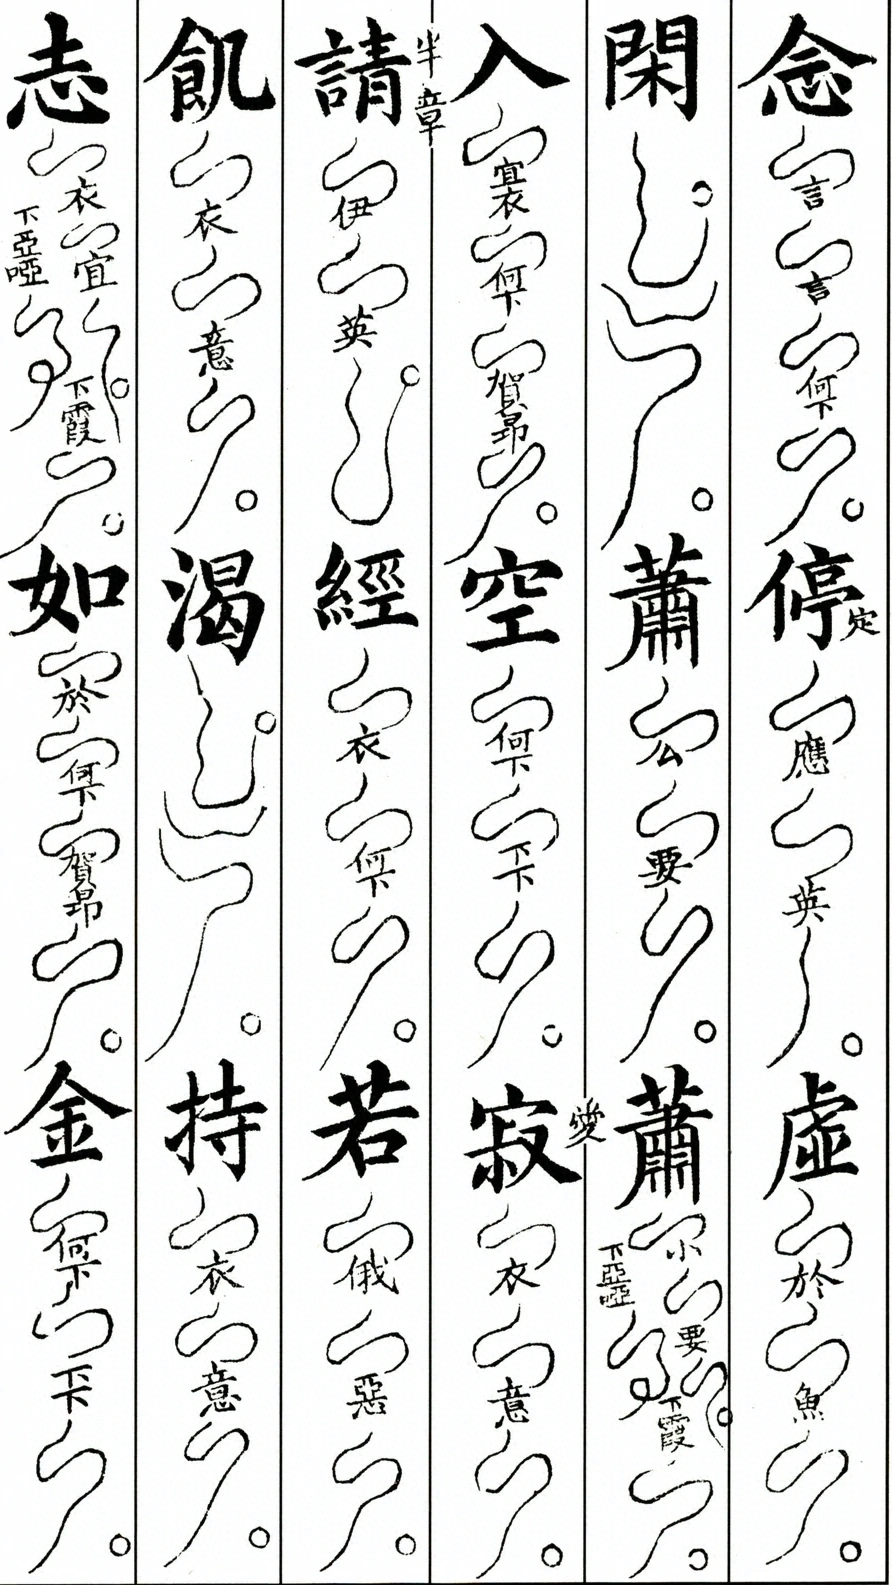 念 言 言 何下 停 定 應 英 虛 於 魚
閑 蕭 公 要 蕭 小 要 下亞啞 下霞
入 宜衣 何下 賀昂 空 何下 下下 寂 愛 衣 意
半章 請 伊 英 經 衣 何下 若 俄 惡
飢 衣 意 渴 持 衣 意
志 衣 宜 下亞啞 下霞 如 於 何下 賀昂 金 何下 下下